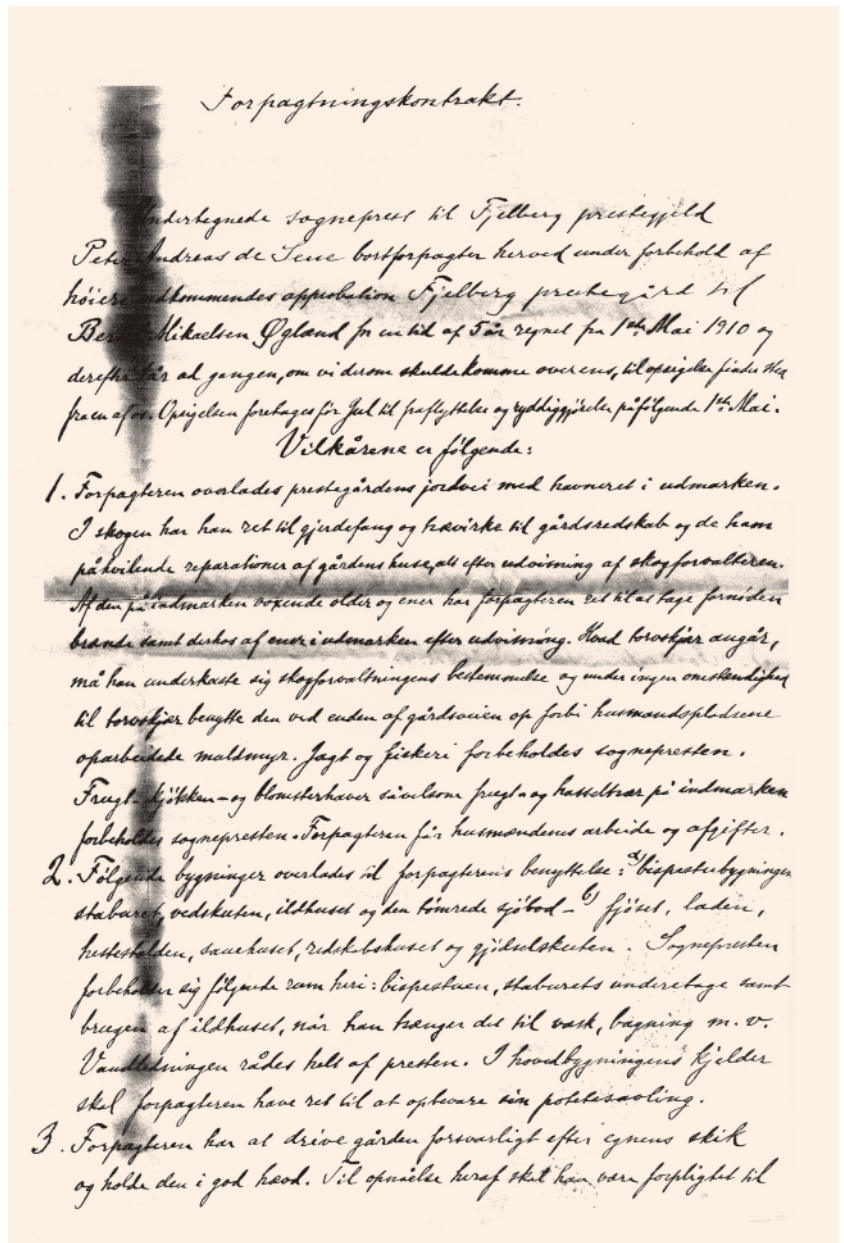 Forpagtningskontrakt.
Undertegnede sogneprest til Fjelberg prestegjeld
Peter Andreas de Seue bortforpagter herved under forbehold af
høiere vedkommendes approbation Fjelberg prestegård til
Mikaelsen Øgland for en tid af 5 år regnet fra 1ste Mai 1910 og
derefter år ad gangen, om vi derom skulde komme overens, til opsigelse finder sted
fra en af os. Opsigelsen foretages før Jul til fraflyttelse og ryddiggjørelse påfølgende 1ste Mai.
Vilkårene er følgende:
1. Forpagteren overlades prestegårdens jordvei med havneret i udmarken.
I skogen har han ret til gjerdefang og trævirke til gårdsredskab og de ham
påhvilende reparationer af gårdens huse, alt efter udvisning af skogforvalteren.
Af den på indmarken voxende older og ener har forpagteren ret til at tage fornøden
brænde samt derhos af ener i udmarken efter udvisning. Hvad torvskjær angår,
må han underkaste sig skogforvaltningens bestemmelse og under ingen omstendighed
til torvskjær benytte den ved enden af gårdsveien op forbi husmandspladsene
oparbeidede muldmyr. Jagt og fiskeri forbeholdes sognepresten.
Frugt- kjøkken- og blomsterhaver såvelsom frugt- og hasseltrær på indmarken
forbeholdes sognepresten. Forpagteren får husmændenes arbeide og afgifter.
2. Følgende bygninger overlades til forpagterens benyttelse: a) bispestuebygningen
staburet, vedskuten, ildhuset og den tømrede sjøbod - b) fjøset, laden,
hestestalden, sauehuset, redskabshuset og gjødselskuten. Sognepresten
forbeholder sig følgende rum heri: bispestuen, staburets underetage samt
brugen af ildhuset, når han trænger det til vask, bagning m. v.
Vandledningen rådes helt af presten. I hovedbygningens kjelder
skal forpagteren have ret til at opbevare sin potetesavling.
3. Forpagteren har at drive gården forsvarligt efter egnens skik
og holde den i god hævd. Til opnåelse heraf skal han være forpligtet til